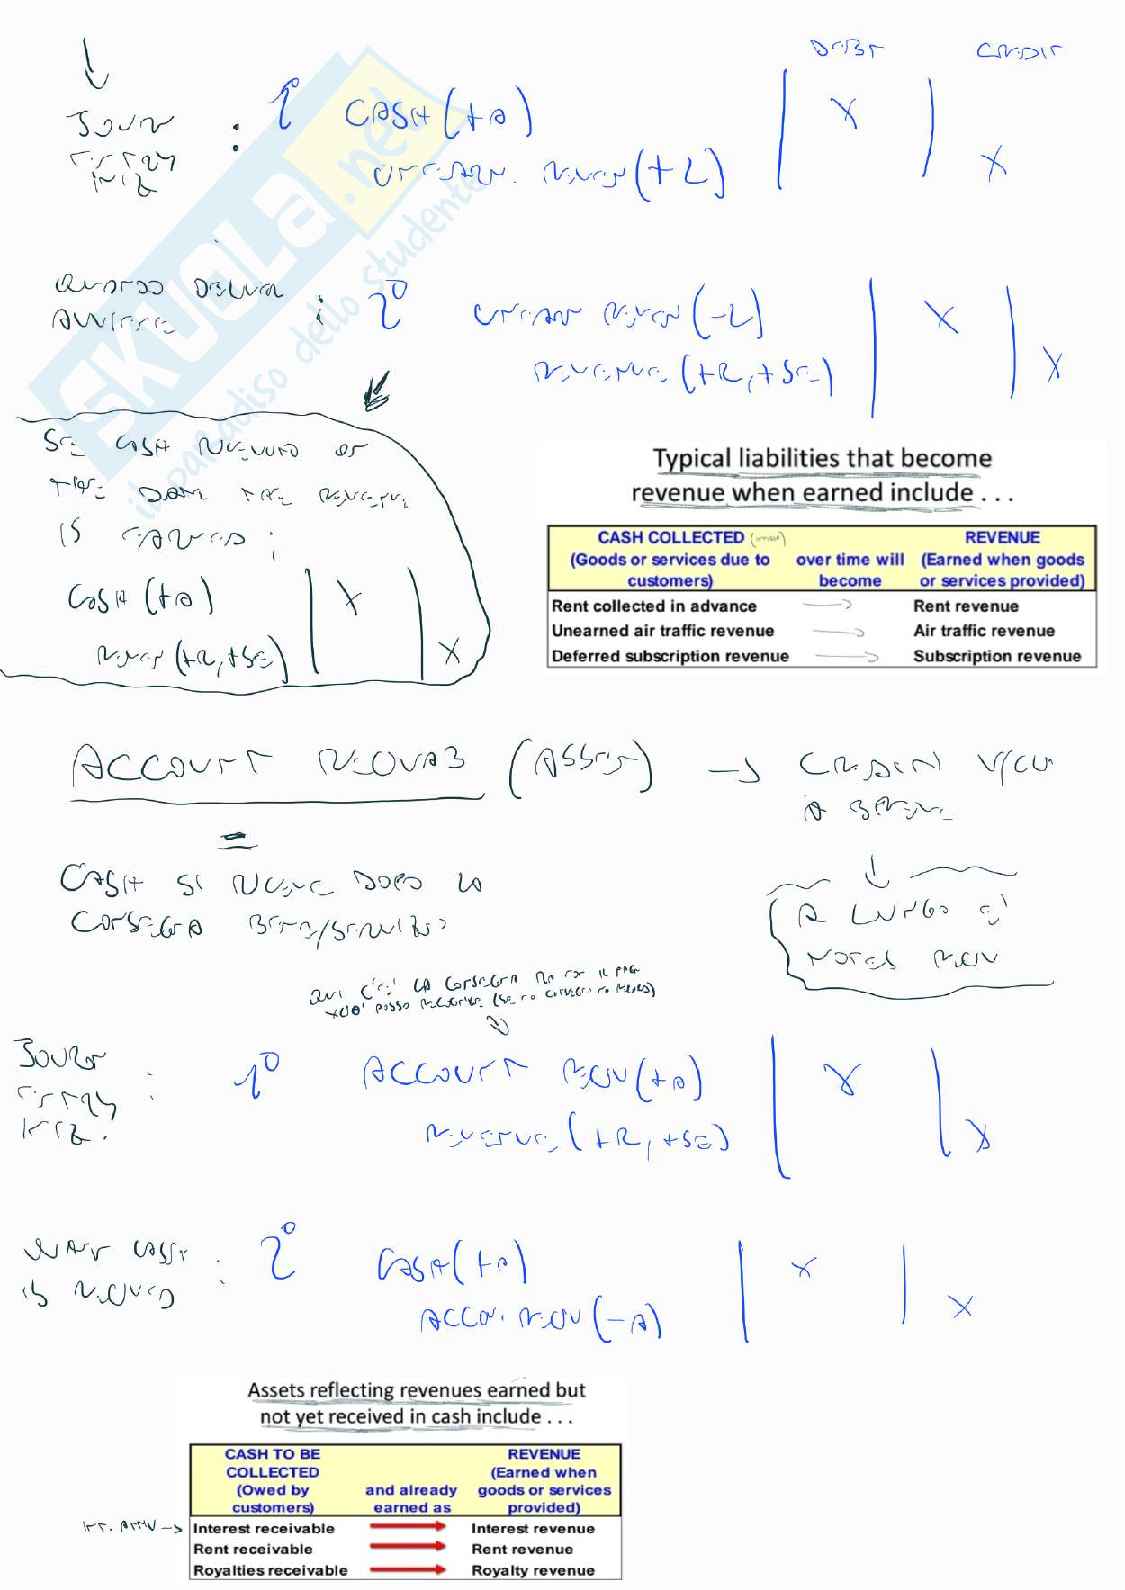 DEBIT CREDIT
JOUR : 1° CASH (+A) X
ENTRY UNEARN. REVEN (+L) X
INIZ
QUANDO
: 2° UNEARN REVEN (-L) X
REVENUE (+R, +SE) X
SE CASH RECEIVED
THE SAME THE REVENUE
IS EARNED :
CASH (+A) X
REVEN (+R, +SE) X
Typical liabilities that become
revenue when earned include . . .
CASH COLLECTED REVENUE
(Goods or services due to over time will (Earned when goods
customers) become or services provided)
Rent collected in advance Rent revenue
Unearned air traffic revenue Air traffic revenue
Deferred subscription revenue Subscription revenue
ACCOUNT RECEIVAB (ASSET) → CREDITI V/CLI
A BREVE
CASH SI RICEVE DOPO LA
CONSEGNA BENE/SERVIZIO
A LUNGO È
NOTES RECEIV
QUI C'È LA CONSEGNA MA NON IL PAG
POSSO
JOUR
ENTRY : 1° ACCOUNT RECEIV (+A) X
INIZ. REVENUE (+R, +SE) X
WHEN CASH : 2° CASH (+A) X
IS RECEIVED ACCOU. RECEIV (-A) X
Assets reflecting revenues earned but
not yet received in cash include . . .
CASH TO BE REVENUE
COLLECTED (Earned when
(Owed by and already goods or services
customers) earned as provided)
INT. ATTIVI → Interest receivable Interest revenue
Rent receivable Rent revenue
Royalties receivable Royalty revenue
SKUOLA.net
il paradiso dello studente